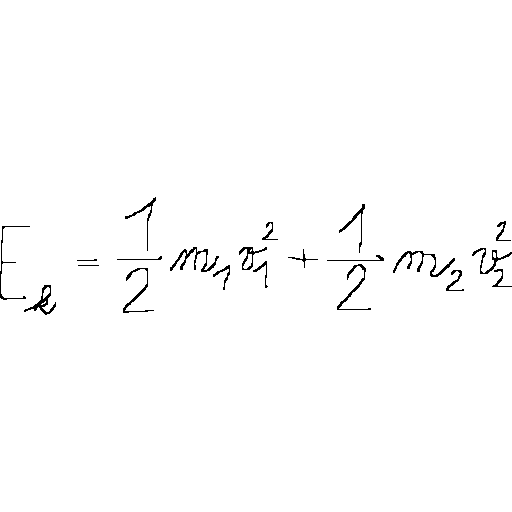 E_k = \frac{1}{2} m_1 v_1^2 + \frac{1}{2} m_2 v_2^2